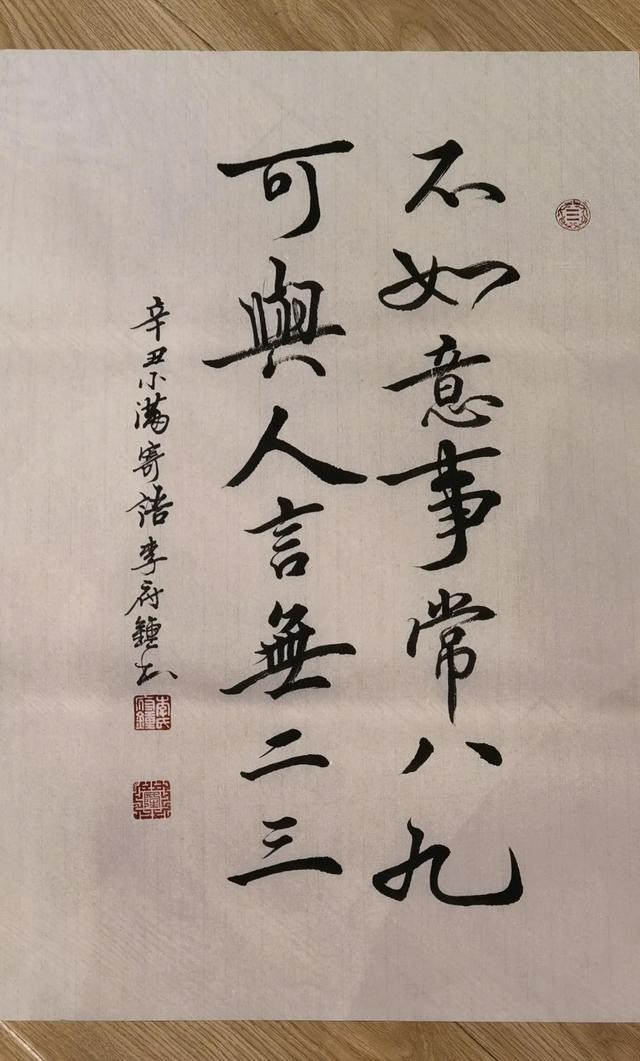 不如意事常八九
可與人言無二三
辛丑小滿寄語李府鍾书